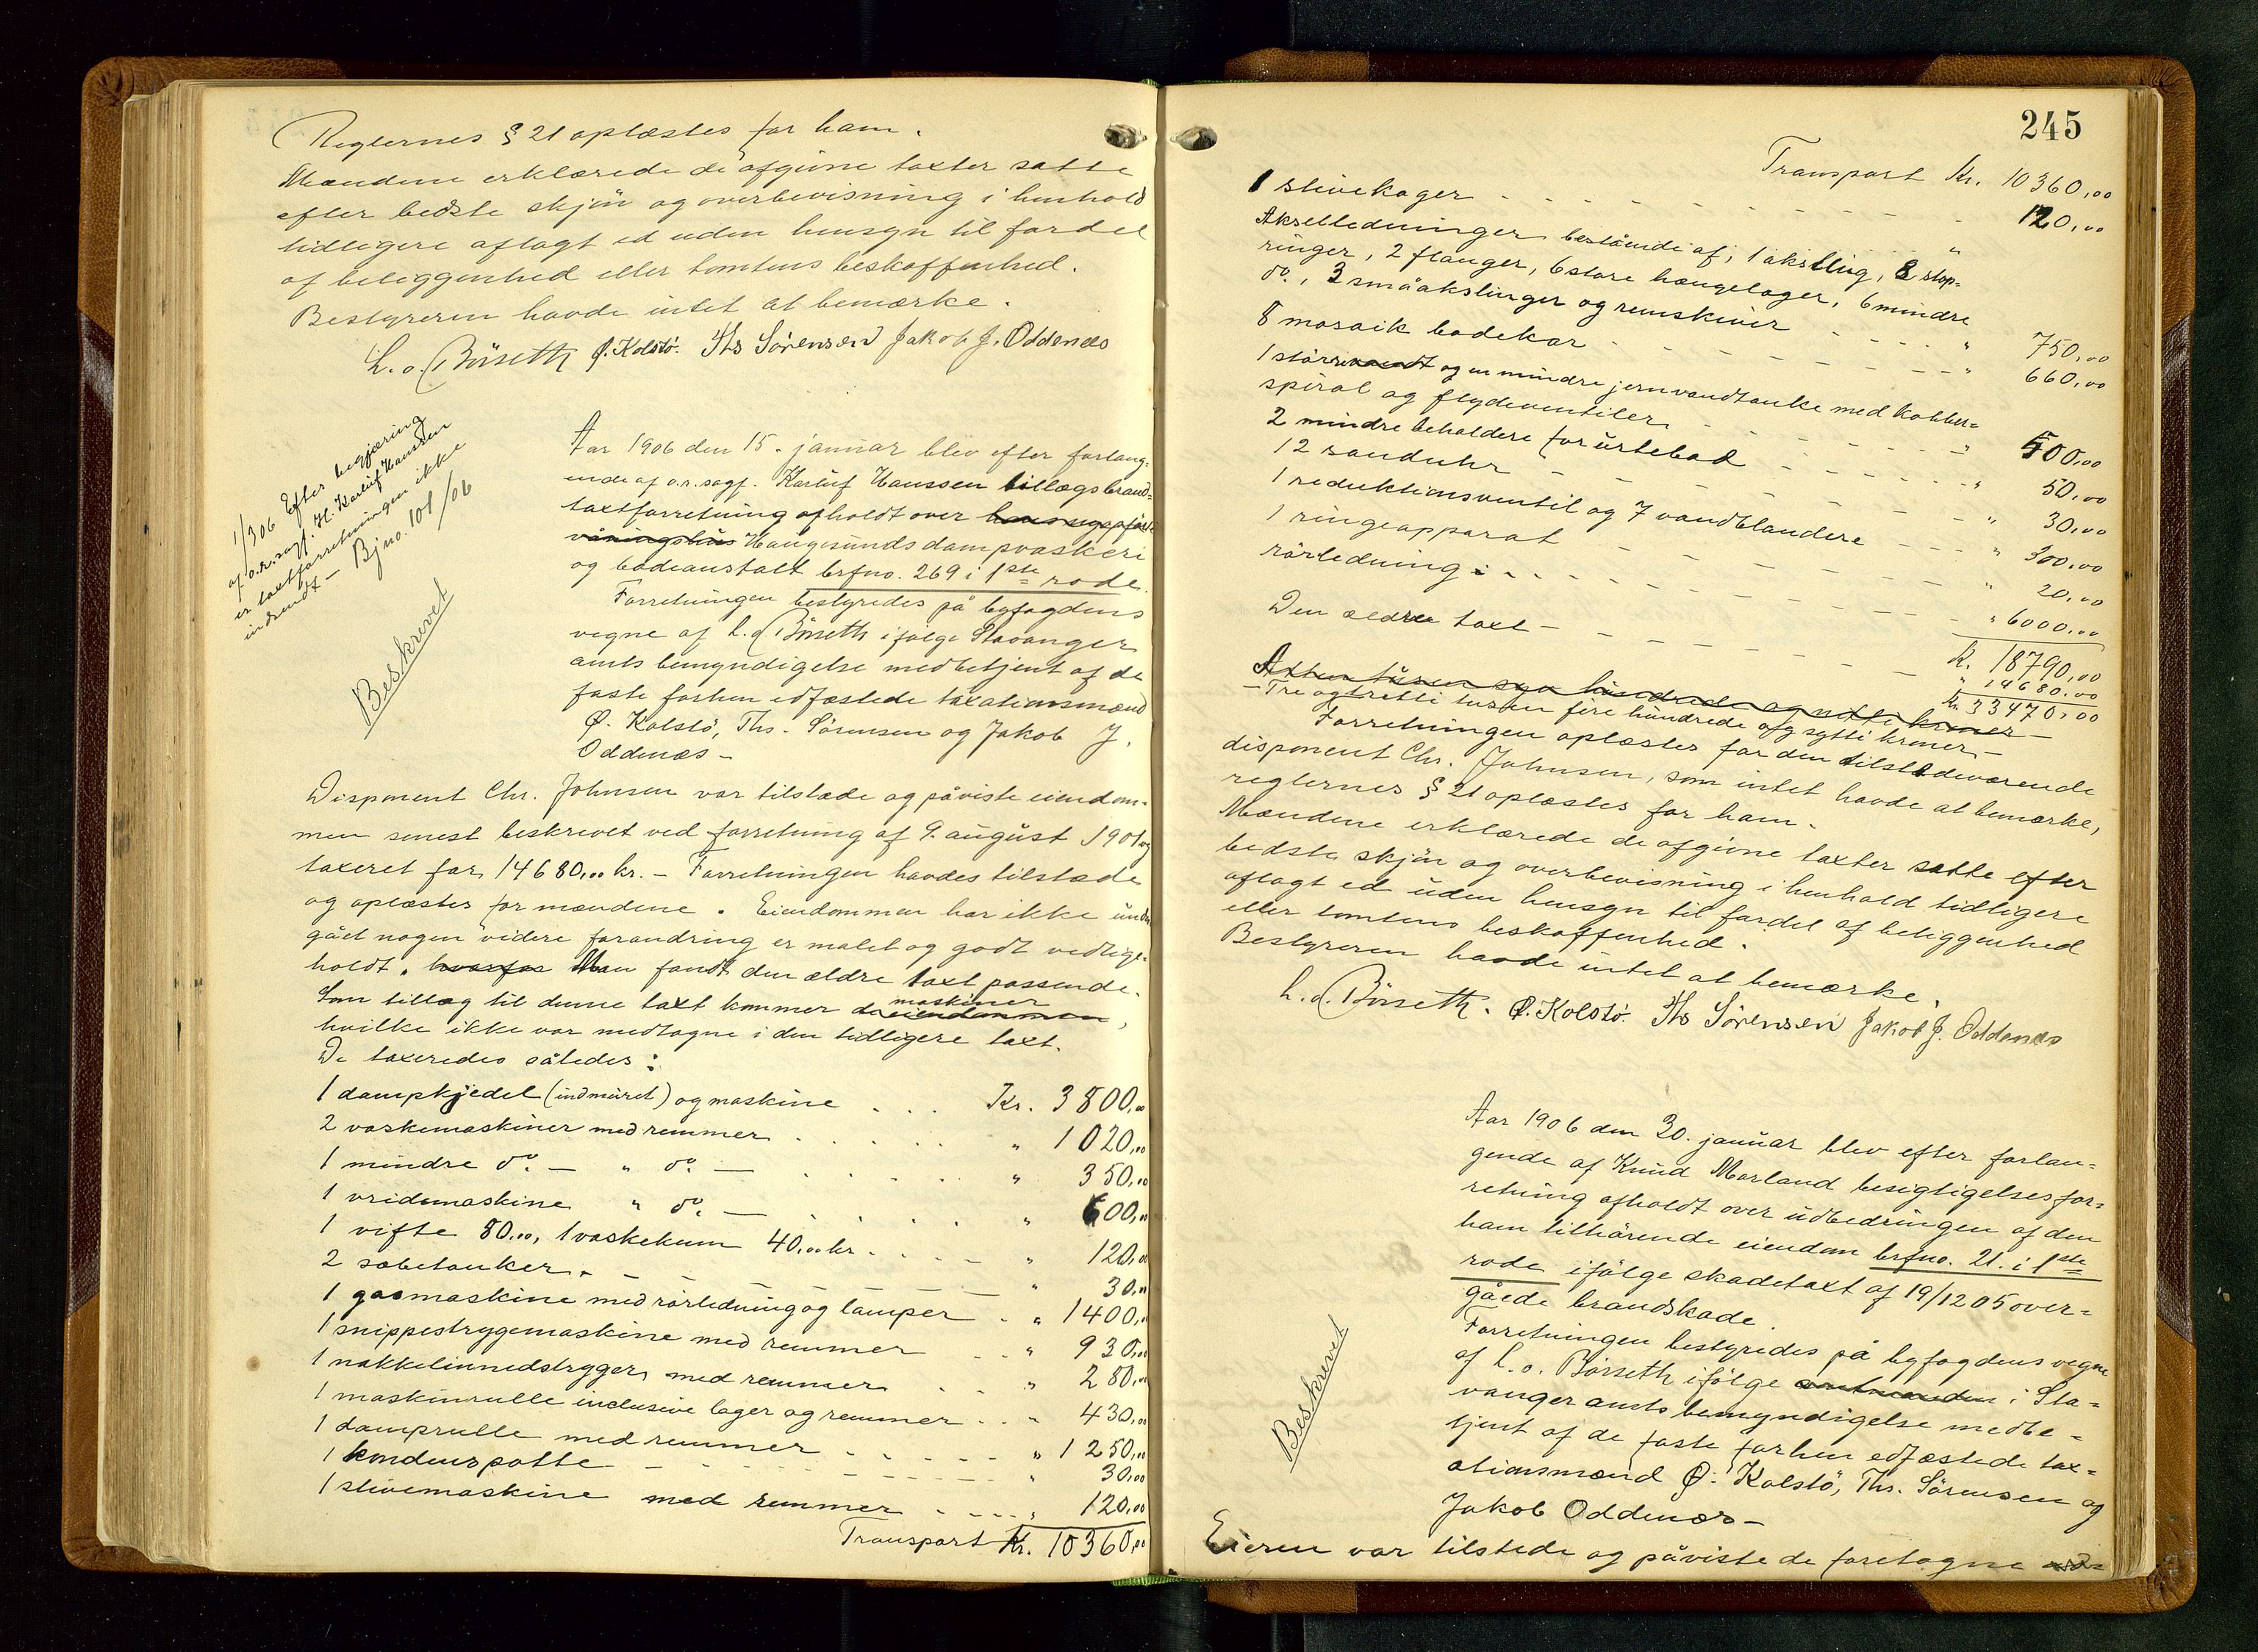 Reglernes § 21 oplæstes for ham.
Mændene erklærede de afgivne taxter satte
efter bedste skjön og overbevisning i henhold
tidligere aflagt ed uden hensyn til fordel
af beliggenhed eller tomtens beskaffenhed.
Bestyreren havde intet at bemærke.
L. o. Börseth Ø. Kolstö. Ths Sörensen Jakob J. Oddenæs
1/3 06 Efter begjæring
af o.r.sagf. H. Karluf Hanssen
er taxtforretningen ikke
indsendt — Bjno. 101/06
Beskrevet
Aar 1906 den 15. januar blev efter forlang-
ende af o.r.sagf. Karluf Hanssen tillægsbrand-
taxtforretning afholdt over
våningshus Haugesunds dampvaskeri
og badeanstalt brfno. 269 i 1ste rode.
Forretningen bestyredes på byfogdens
vegne af L. o. Börseth ifölge Stavanger
amts bemyndigelse medbetjent af de
faste forhen edfæstede taxationsmænd
Ø. Kolstö, Ths. Sörensen og Jakob J.
Oddenæs —
Disponent Chr. Johnsen var tilstæde og påviste eiendom-
men senest beskrevet ved forretning af 9. august 1901 og
taxeret for 14680,00 kr. — Forretningen havdes tilstæde
og oplæstes for mændene. Eiendommen har ikke under-
gået nogen videre forandring er malet og godt vedlige-
holdt. hvorfor Man fandt den ældre taxt passende.
Som tillæg til denne taxt kommer de eiendommen maskiner,
hvilke ikke var medtagne i den tidligere taxt.
De taxeredes således:
1 dampkjedel (indmuret) og maskine . . . Kr. 3800,00
2 vaskemaskiner med remmer . . . . . " 1020,00
1 mindre do. — " do. — . . . . . " 350,00
1 vridemaskine " do. — . . . . . " 600,00
1 vifte 80,00, 1 vaskekum 40,00 kr. . . . . — " 120,00
2 sæbetanker. — — — — — " 30,00
1 gasmaskine med rörledning og lamper . " 1400,00
1 snippestrygemaskine med remmer . . " 930,00
1 nakkelinnedstryger med remmer . . . " 280,00
1 maskinrulle inclusive lager og remmer . . " 430,00
1 damprulle med remmer . . . . . " 1250,00
1 kondenspotte — — — — " 30,00
1 stivemaskine med remmer . . . . " 120,00
Transport Kr. 10360,00
245
Transport Kr. 10360,00
1 stivekoger - - - - - - - " 120,00
Akselledninger bestående af; 1 aksling, 8 stop-
ringer, 2 flanger, 6 store hængelager, 6 mindre
do., 3 småakslinger og remskiver - - - - " 750,00
8 mosaik badekar - - - - - - - " 660,00
1 större vandt og en mindre jernvandtanke med kobber-
spiral og flydeventiler. - - - - - - " 500,00
2 mindre beholdere for urtebad - - - - - " 50,00
12 sanduhr - - - - - - - " 30,00
1 reduktionsventil og 7 vandblandere - - - " 300,00
1 ringeapparat - - - - - - - " 20,00
rörledning: - - - - - - - - " 6000,00
K. 18790,00
Den ældre taxt - - - - - - - " 14680,00
Kr. 33470,00
Atten tusen syv hundrede og nitti kroner —
— Tre og tretti tusen fire hundrede og sytti kroner —
Forretningen oplæstes for den tilstedeværende
disponent Chr. Johnsen, som intet havde at bemærke,
reglernes § 21 oplæstes for ham.
Mændene erklærede de afgivne taxter satte efter
bedste skjön og overbevisning i henhold tidligere
aflagt ed uden hensyn til fordel af beliggenhed
eller tomtens beskaffenhed.
Bestyreren havde intet at bemærke.
L. o. Börseth. Ø. Kolstö. Ths Sörensen Jakob J. Oddenæs
Aar 1906 den 30. januar blev efter forlan-
gende af Knud Morland besigtigelsesfor-
retning afholdt over udbedringen af den
ham tilhörende eiendom brfno. 21. i 1ste
rode ifölge skadetaxt af 19/12 05 over-
gåede brandskade.
Forretningen bestyredes på byfogdens vegne
af L. o. Börseth ifölge amtmanden i Sta-
vanger amts bemyndigelse medbe-
tjent af de faste forhen edfæstede tax-
ationsmænd Ø. Kolstö, Ths. Sörensen og
Jakob Oddenæs —
Beskrevet
Eieren var tilstede og påviste de foretagne